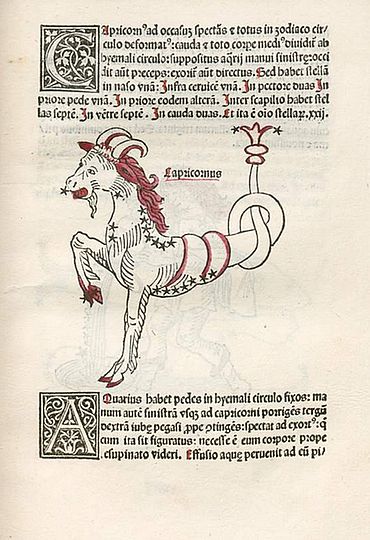 CApricornꝰ ad occasuȝ spectās ⁊ totus in zodiaco cir/
culo deformatꝰ: cauda ⁊ toto corpe mediꝰ diuidit̄ ab
hyemali circulo: suppositus aq̄rij manui sinistre: occi
dit aūt preceps: exorit̄ aūt directus. Sed habet stellā
in naso vnā: Infra ceruicē vnā. In pectore duas In
priore pede vnā. In priore eodem alterā. Inter scapilio habet stel
las septē. In vētre septē. In cauda duas. Et ita ē oīo stellaꝝ. xxij.
Capricornus
AQuarius habet pedes in hyemali circulo fixos: ma
num autē sinistrā vsqȝ ad capricorni porrigēs tergū
dextrā iubę pegasi ꝓpe ↄtingēs: spectat ad exortꝰ: q̄
cum ita sit figuratus: necesse ē eum corpore prope
resupinato videri. Effusio aquę peruenit ad eū pi/